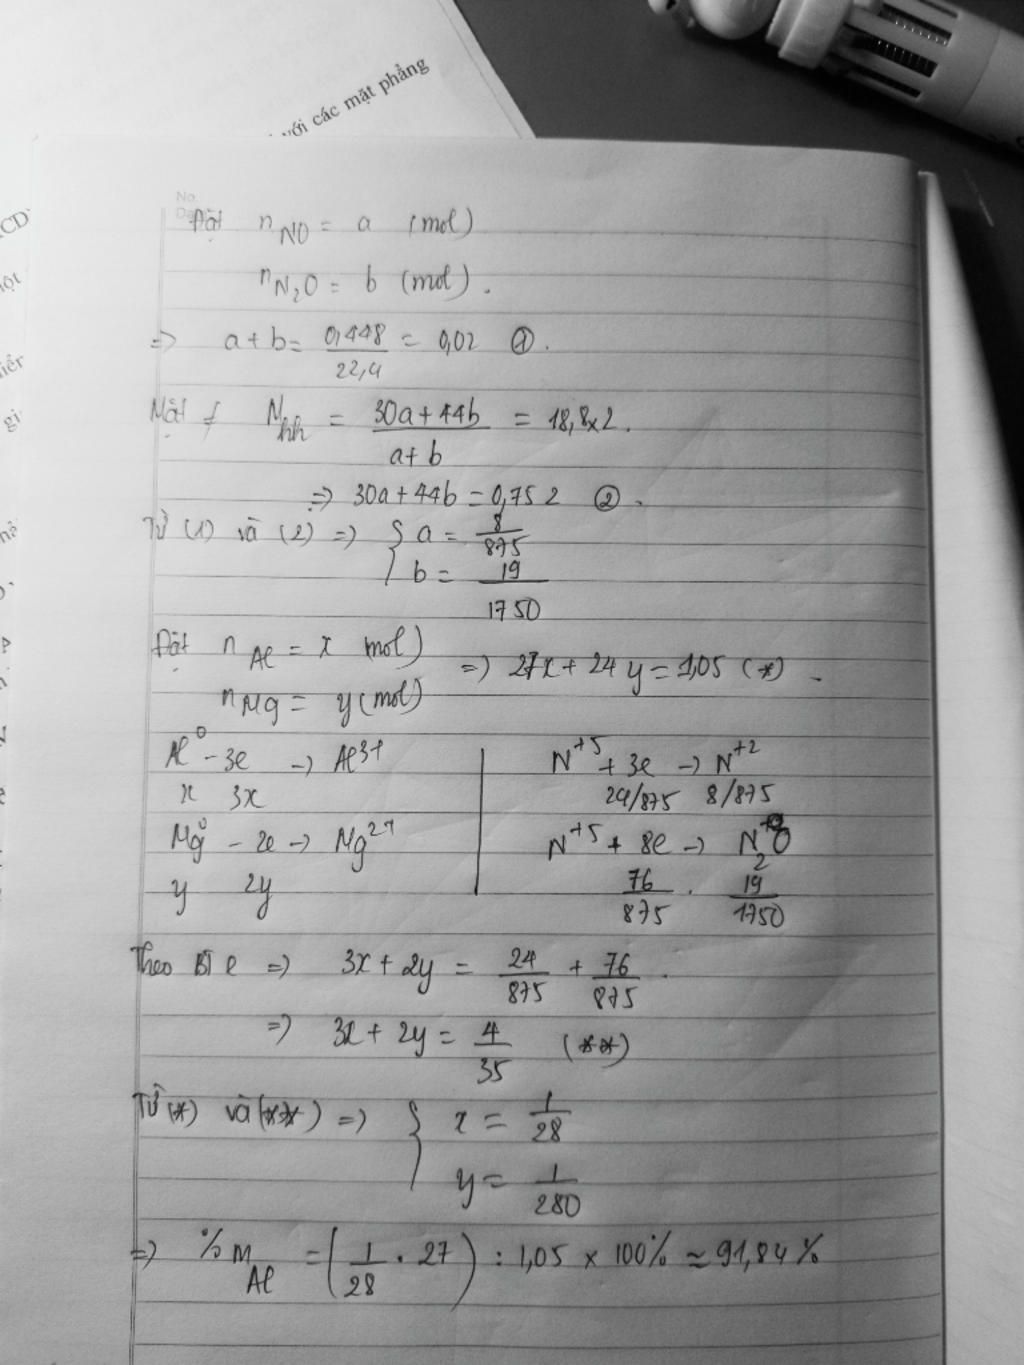 với các mặt phẳng
CD
No.
Đặt n_NO = a (mol)
n_N₂O = b (mol).
=> a + b = 0,448/22,4 = 0,02 ①.
Mặt ≠ M_hh = (30a + 44b)/(a + b) = 18,8 x 2.
=> 30a + 44b = 0,752 ②.
Từ (1) và (2) => { a = 8/875
b = 19/1750
Đặt n_Al = x mol)
=> 27x + 24y = 1,05 (*).
n_Mg = y (mol)
Al⁰ - 3e -> Al³⁺ | N⁺⁵ + 3e -> N⁺²
x 3x | 24/875 8/875
Mg⁰ - 2e -> Mg²⁺ | N⁺⁵ + 8e -> N₂O
y 2y | 76/875 . 19/1750
Theo BT e => 3x + 2y = 24/875 + 76/875.
=> 3x + 2y = 4/35 (**)
Từ (*) và (**) => { x = 1/28
y = 1/280
=> %m_Al = (1/28 . 27) : 1,05 x 100% ≈ 91,84%